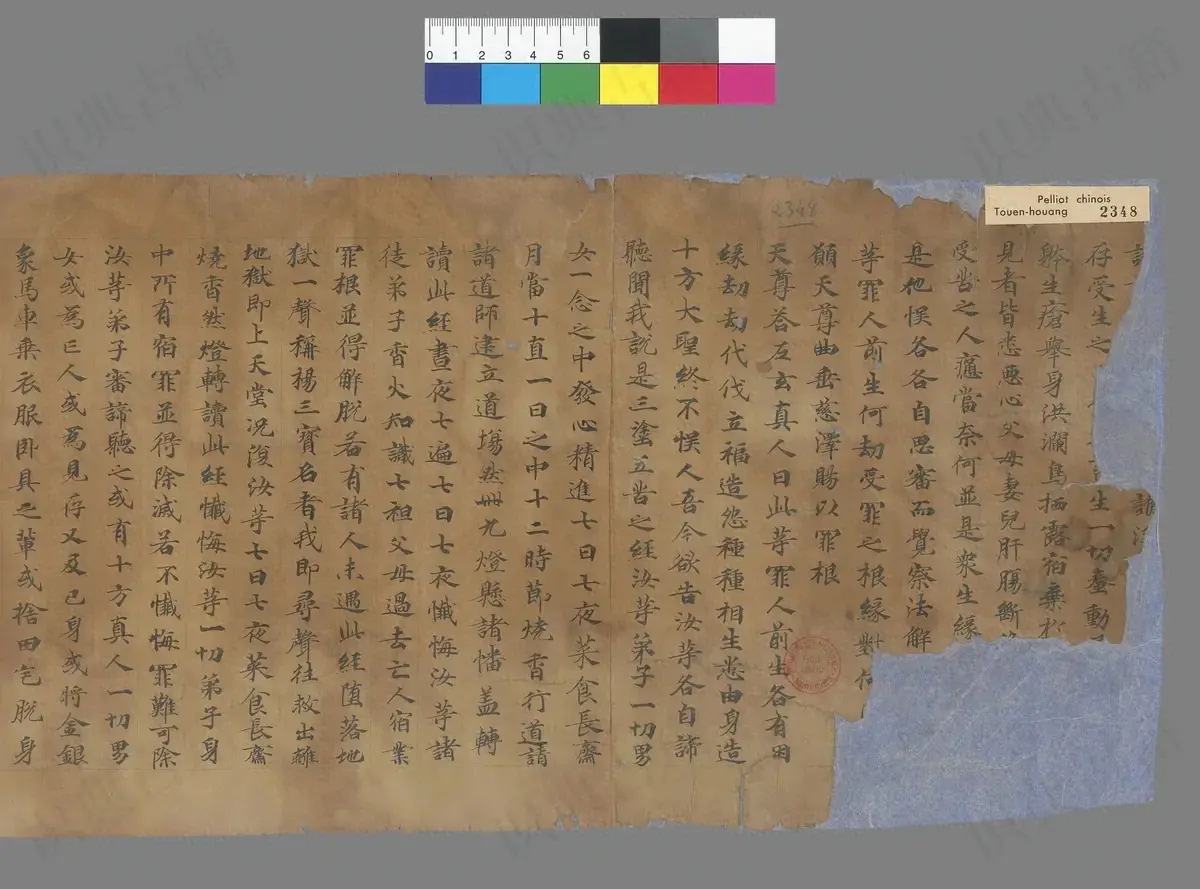 0 1 2 3 4 5 6
Pelliot chinois
Touen-houang 2348
2348
存受生之 生一切蠢動
躰生瘡舉身洪瀾鳥栖露宿棄
見者皆悉惡心父母妻兒肝腸斷
受苦之人痛當奈何並是衆生緣
是也悮各各自思審而覺察法解
䓁罪人前生何劫受罪之根緣對
願天尊曲垂慈澤賜以罪根
天尊荅左玄真人曰此䓁罪人前生各有因
緣劫劫代代立福造怨種種相生悉由身造
十方大聖終不悮人吾今欲告汝䓁各自諦
聽聞我說是三塗五苦之經汝䓁弟子一切男
女一念之中發心精進七日七夜菜食長齋
月當十直一日之中十二時節燒香行道請
諸道師建立道塲然卌九燈懸諸幡盖轉
讀此經晝夜七遍七日七夜懴悔汝䓁諸
徒弟子香火知識七祖父母過去亡人宿業
罪根並得解脫若有諸人未遇此經堕落地
獄一聲稱揚三寶名者我即尋聲往救出離
地獄即上天堂况復汝䓁七日七夜菜食長齋
燒香然燈轉讀此經懴悔汝䓁一切弟子身
中所有宿罪並得除滅若不懴悔罪難可除
汝䓁弟子審諦聽之或有十方真人一切男
女或爲亡人或爲見存又及己身或將金銀
象馬車乗衣服卧具之輩或捨田宅脫身